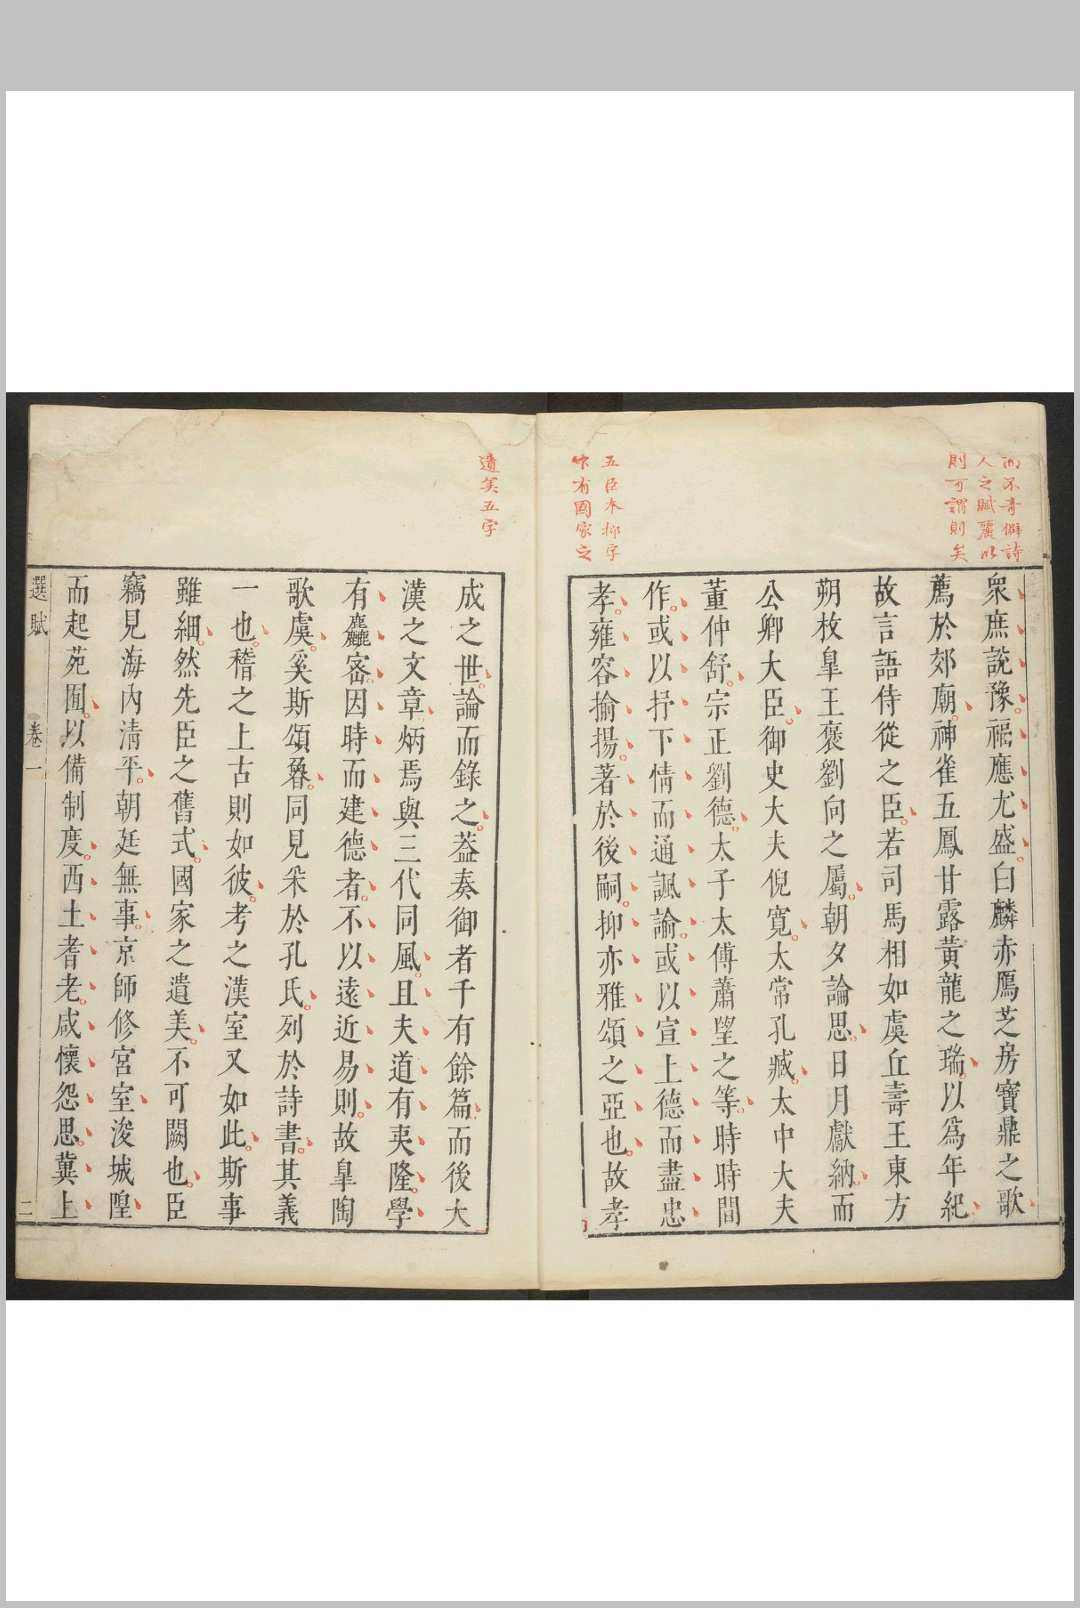 而不奇僻詩
人之賦麗以
則可謂則矣
五臣本抑字
作有國家之
遺美五字
衆庶說豫福應尤盛白麟赤鴈芝房寶鼎之歌
薦於郊廟神雀五鳳甘露黃龍之瑞以爲年紀
故言語侍從之臣若司馬相如虞丘壽王東方
朔枚皐王褒劉向之屬朝夕論思日月獻納而
公卿大臣御史大夫倪寬太常孔臧太中大夫
董仲舒宗正劉德太子太傅蕭望之等時時間
作或以抒下情而通諷諭或以宣上德而盡忠
孝雍容揄揚著於後嗣抑亦雅頌之亞也故孝
成之世論而錄之蓋奏御者千有餘篇而後大
漢之文章炳焉與三代同風且夫道有夷隆學
有麤密因時而建德者不以遠近易則故皐陶
歌虞奚斯頌魯同見采於孔氏列於詩書其義
一也稽之上古則如彼考之漢室又如此斯事
雖細然先臣之舊式國家之遺美不可闕也臣
竊見海內清平朝廷無事京師修宮室浚城隍
而起苑囿以備制度西土耆老咸懷怨思冀上
選賦 卷一 二